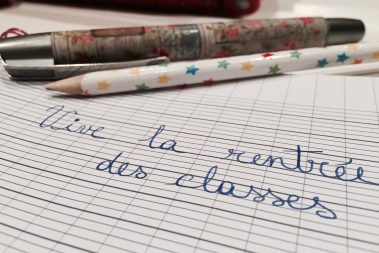 Vive la rentrée
des classes